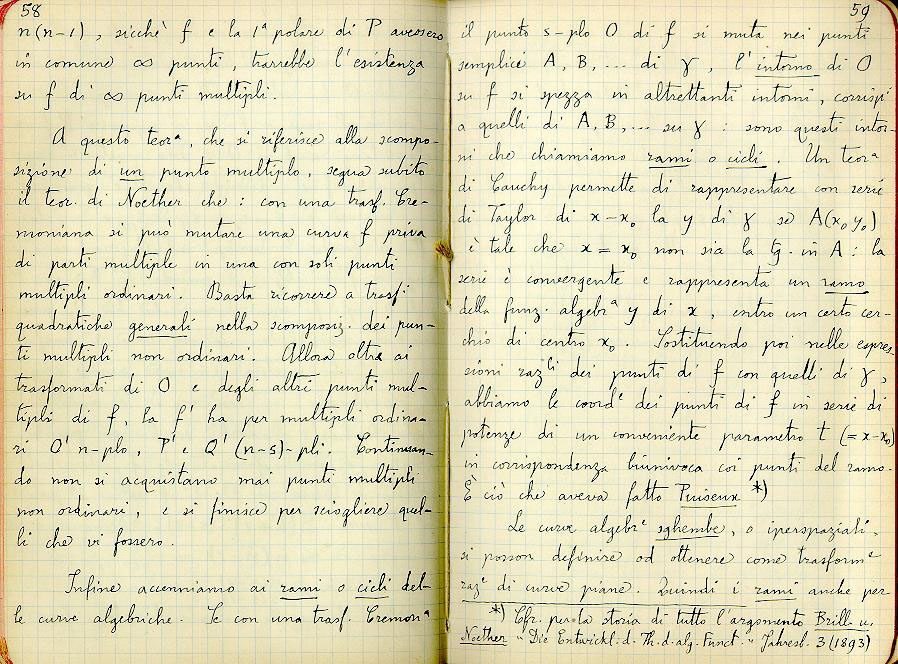 58
n(n-1), sicchè f e la 1ª polare di P avessero
in comune ∞ punti, trarrebbe l'esistenza
su f di ∞ punti multipli.
A questo teorª, che si riferisce alla scompo-
sizione di un punto multiplo, segua subito
il teor. di Noether che : con una trasf. Cre-
moniana si può mutare una curva f priva
di parti multiple in una con soli punti
multipli ordinari. Basta ricorrere a trasfⁱ
quadratiche generali nella scomposiz. dei pun-
ti multipli non ordinari. Allora oltre ai
trasformati di O e degli altri punti mul-
tipli di f, la f' ha per multipli ordina-
ri O' n-plo, P' e Q' (n-s)-pli. Continuan-
do non si acquistano mai punti multipli
non ordinari, e si finisce per sciogliere quel-
li che vi fossero.
Infine accenniamo ai rami o cicli del-
le curve algebriche. Se con una trasf. Cremonª
59
il punto s-plo O di f si muta nei punti
semplici A, B, ... di γ, l'intorno di O
su f si spezza in altrettanti intorni, corrispⁱ
a quelli di A, B, ... su γ : sono questi intor-
ni che chiamiamo rami o cicli. Un teorª
di Cauchy permette di rappresentare con serie
di Taylor di x-x₀ la y di γ se A(x₀y₀)
è tale che x = x₀ non sia la tg. in A : la
serie è convergente e rappresenta un ramo
della funz. algebrª y di x, entro un certo cer-
chio di centro x₀. Sostituendo poi nelle espres-
sioni razˡⁱ dei punti di f con quelli di γ,
abbiamo le coordᵉ dei punti di f in serie di
potenze di un conveniente parametro t (= x-x₀)
in corrispondenza biunivoca coi punti del ramo.
È ciò che aveva fatto Puiseux *)
Le curve algebrᵉ sghembe, o iperspaziali,
si posson definire od ottenere come trasformᵉ
razᵉ di curve piane. Quindi i rami anche per
*) Cfr. per la storia di tutto l'argomento Brill u.
Noether "Die Entwickl. d. Th. d. alg. Funct." Jahresb. 3 (1893)